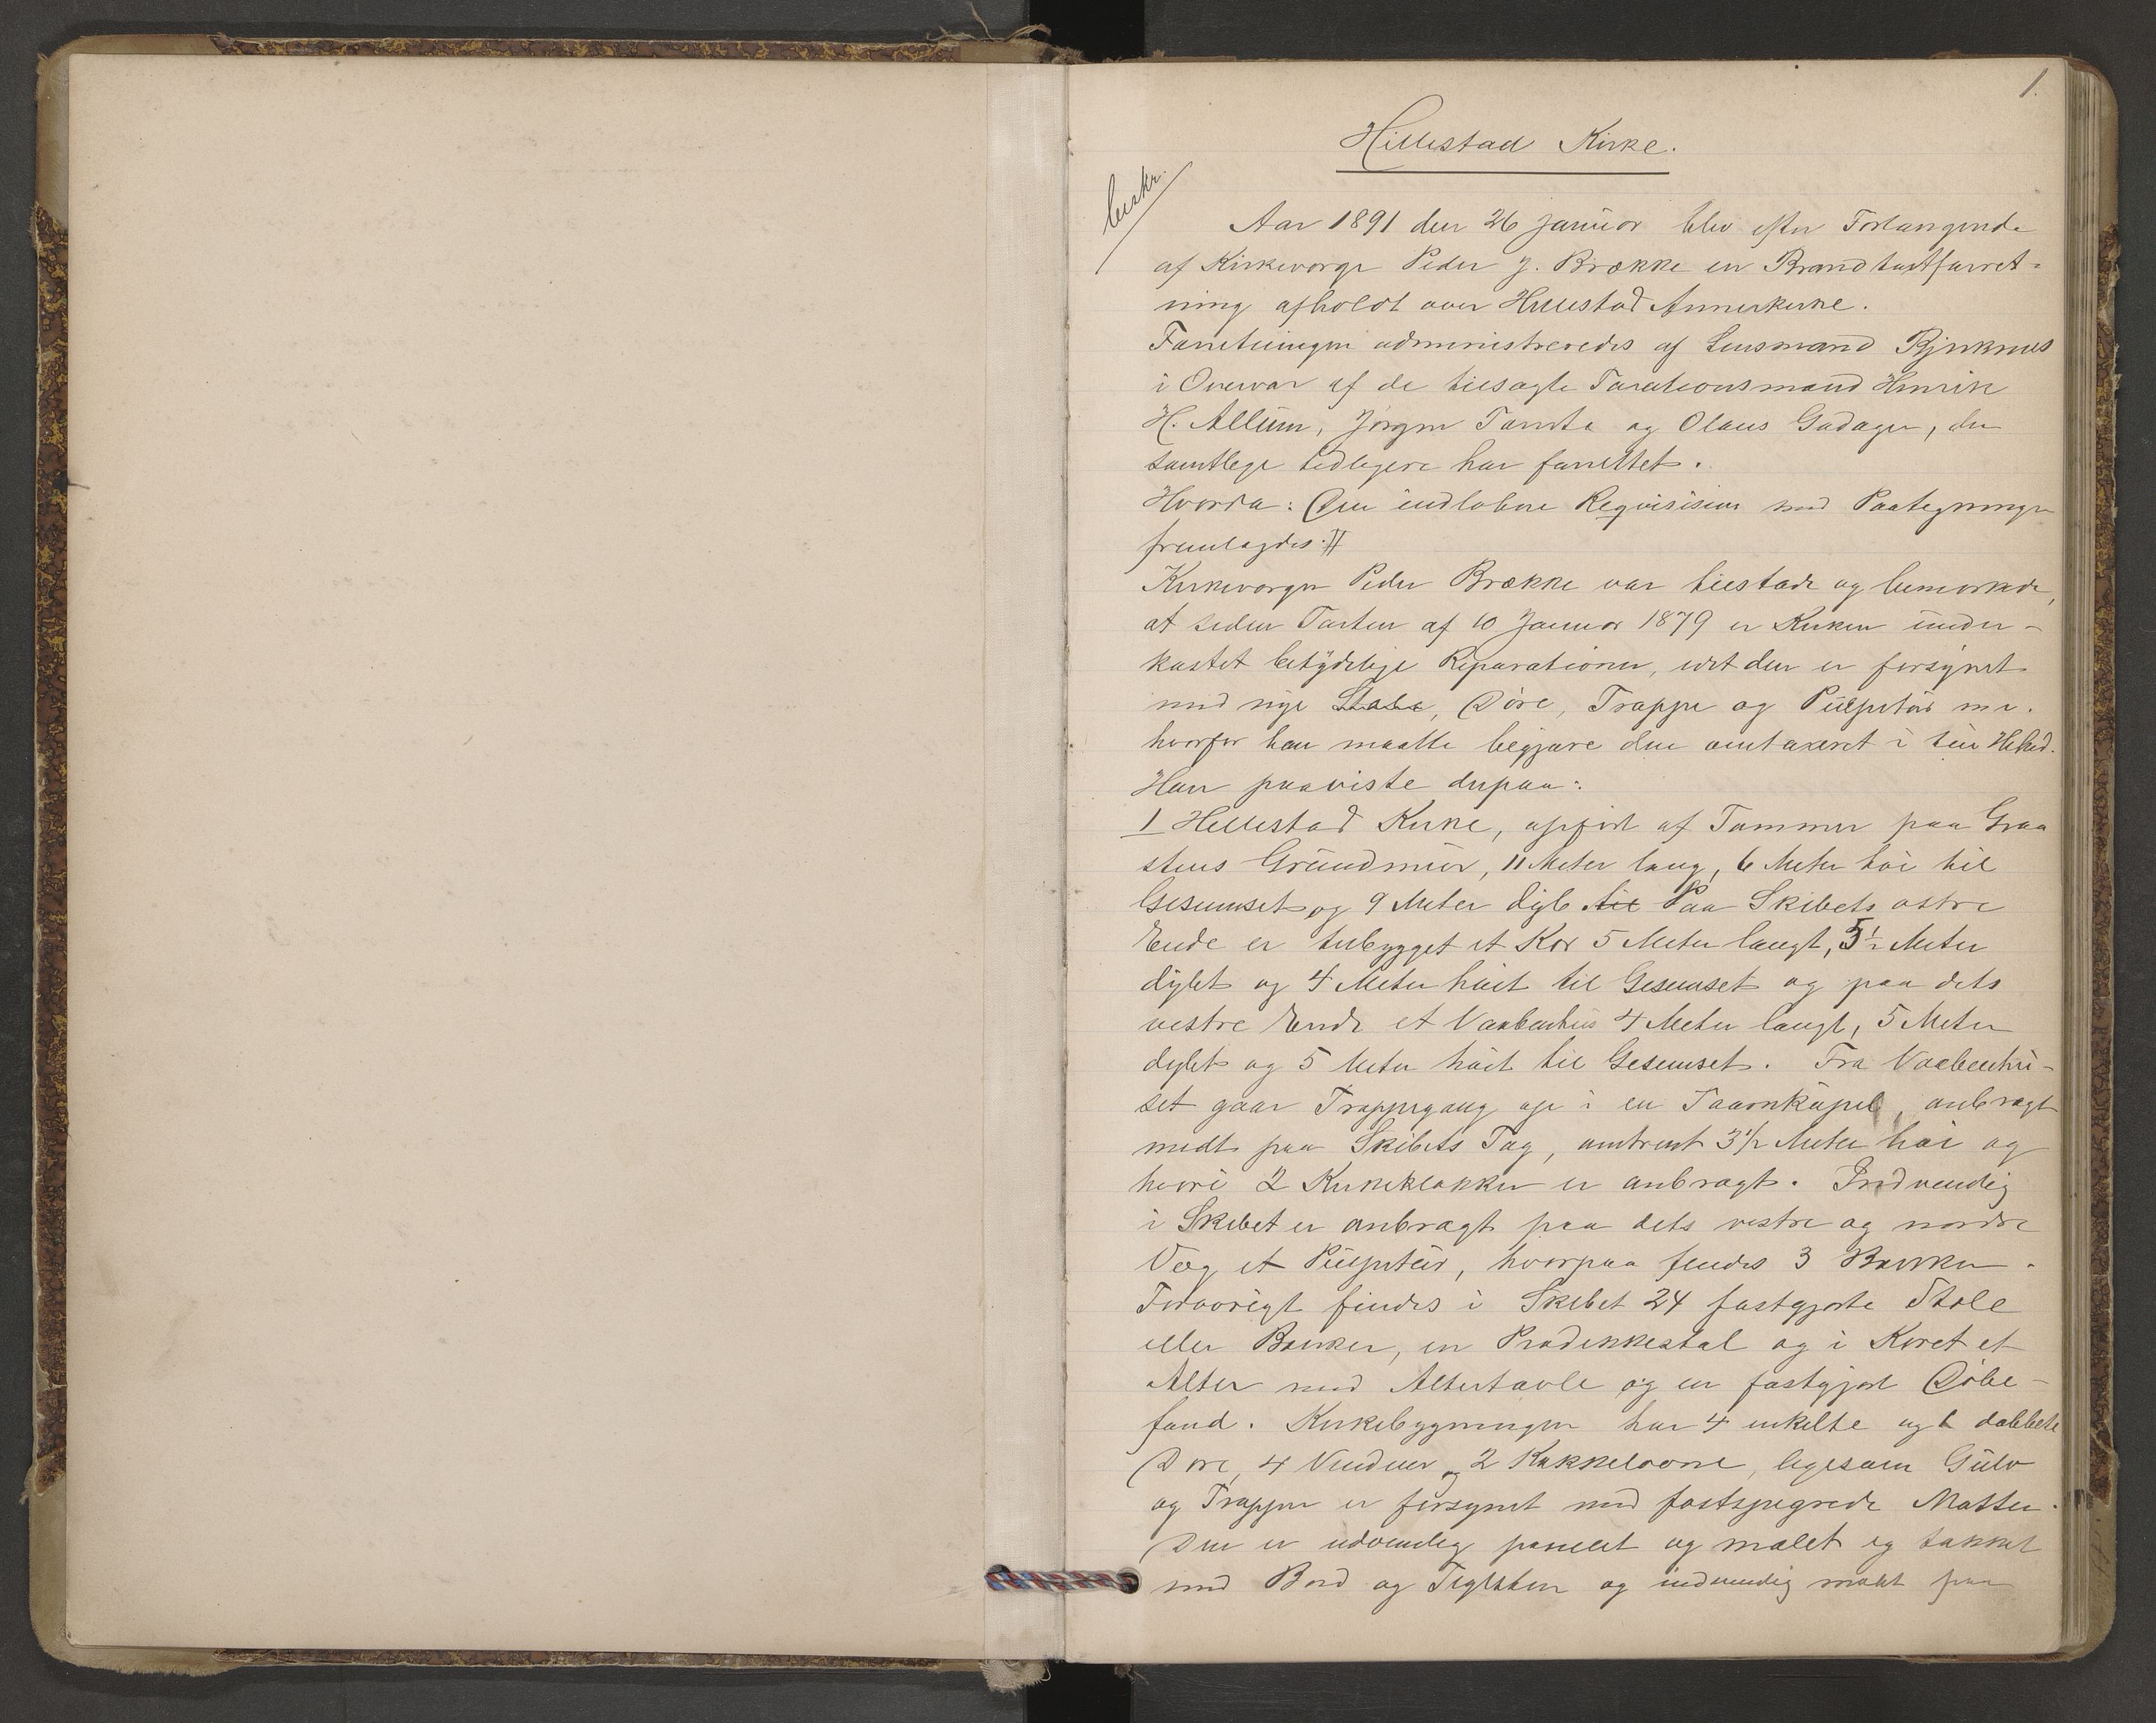 1.
Hillestad Kirke.
Aar 1891 den 26 Januar blev efter Forlangende
af Kirkeværge Peder J. Brække en Brandtaxtforret-
ning afholdt over Hillestad Annexkirke.
Forretningen administreredes af Lensmand
i Overvær af de tilsagte Taxationsmænd Henrik
H. Allum, Jørgen Tomta og Olaus Gadager, der
samtlige tidligere har forrettet.
Hvorda: Den indløbne Requisision med Paategninger
fremlagdes.
Kirkeværgen Peder Brække var tilstede og bemærkede,
at siden Taxten af 10 Januar 1879 er Kirken under-
kastet betydelige Reparationer, idet den er forsynet
med nye Stole, Døre, Trappe og Pulpitur m.
hvorfor han maatte begjære den omtaxeret i sin Helhed.
Han paaviste derpaa:
1 Hillestad Kirke, opført af Tømmer paa Graa
stens Grundmur, 11 Meter lang, 6 Meter høi til
Gesimset og 9 Meter dyb. til Paa Skibets østre
Ende er tilbygget et Kor 5 Meter langt, 5½ Meter
dybt og 4 Meter høit til Gesimset og paa dets
vestre Ende et Vaabenhus 4 Meter langt, 5 Meter
dybt og 5 Meter høit til Gesimset. Fra Vaabenhu-
set gaar Trappegang op i en Taarnkupel, anbragt
midt paa Skibets Tag, omtrent 3½ Meter høi og
hvori 2 Kirkeklokker er anbragt. Indvendig
i Skibet er anbragt paa dets vestre og nordre
Væg et Pulpitur, hvorpaa findes 3 Bænker.
Forøvrigt findes i Skibet 24 fastgjorte Stole
eller Bænker, en Prædikkestol og i Koret et
Alter med Altertavle og en fastgjort Døbe-
fond. Kirkebygningen har 4 enkelte og 1 dobbelt
Døre, 4 Vinduer og 2 Kakkelovne, ligesom Gulv
og Trapper er forsynet med fastspigrede Matter.
Den er udvendig panelet og malet og tækket
med Bord og Teglsten og indvendig malt paa